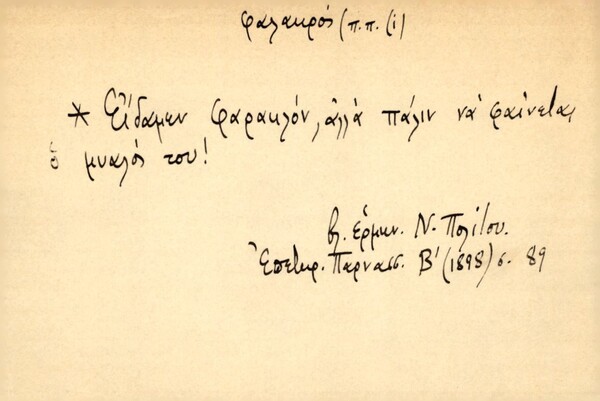 φαλακρός (π.π. (i)
* Εἴδαμεν φαρακλόν, ἀλλὰ πάλιν νὰ φαίνεται
ὁ μυαλός του!
βλ. ἑρμην. Ν. Πολίτου.
Ἐπετηρ. Παρνασσ. Β' (1898) σ. 89